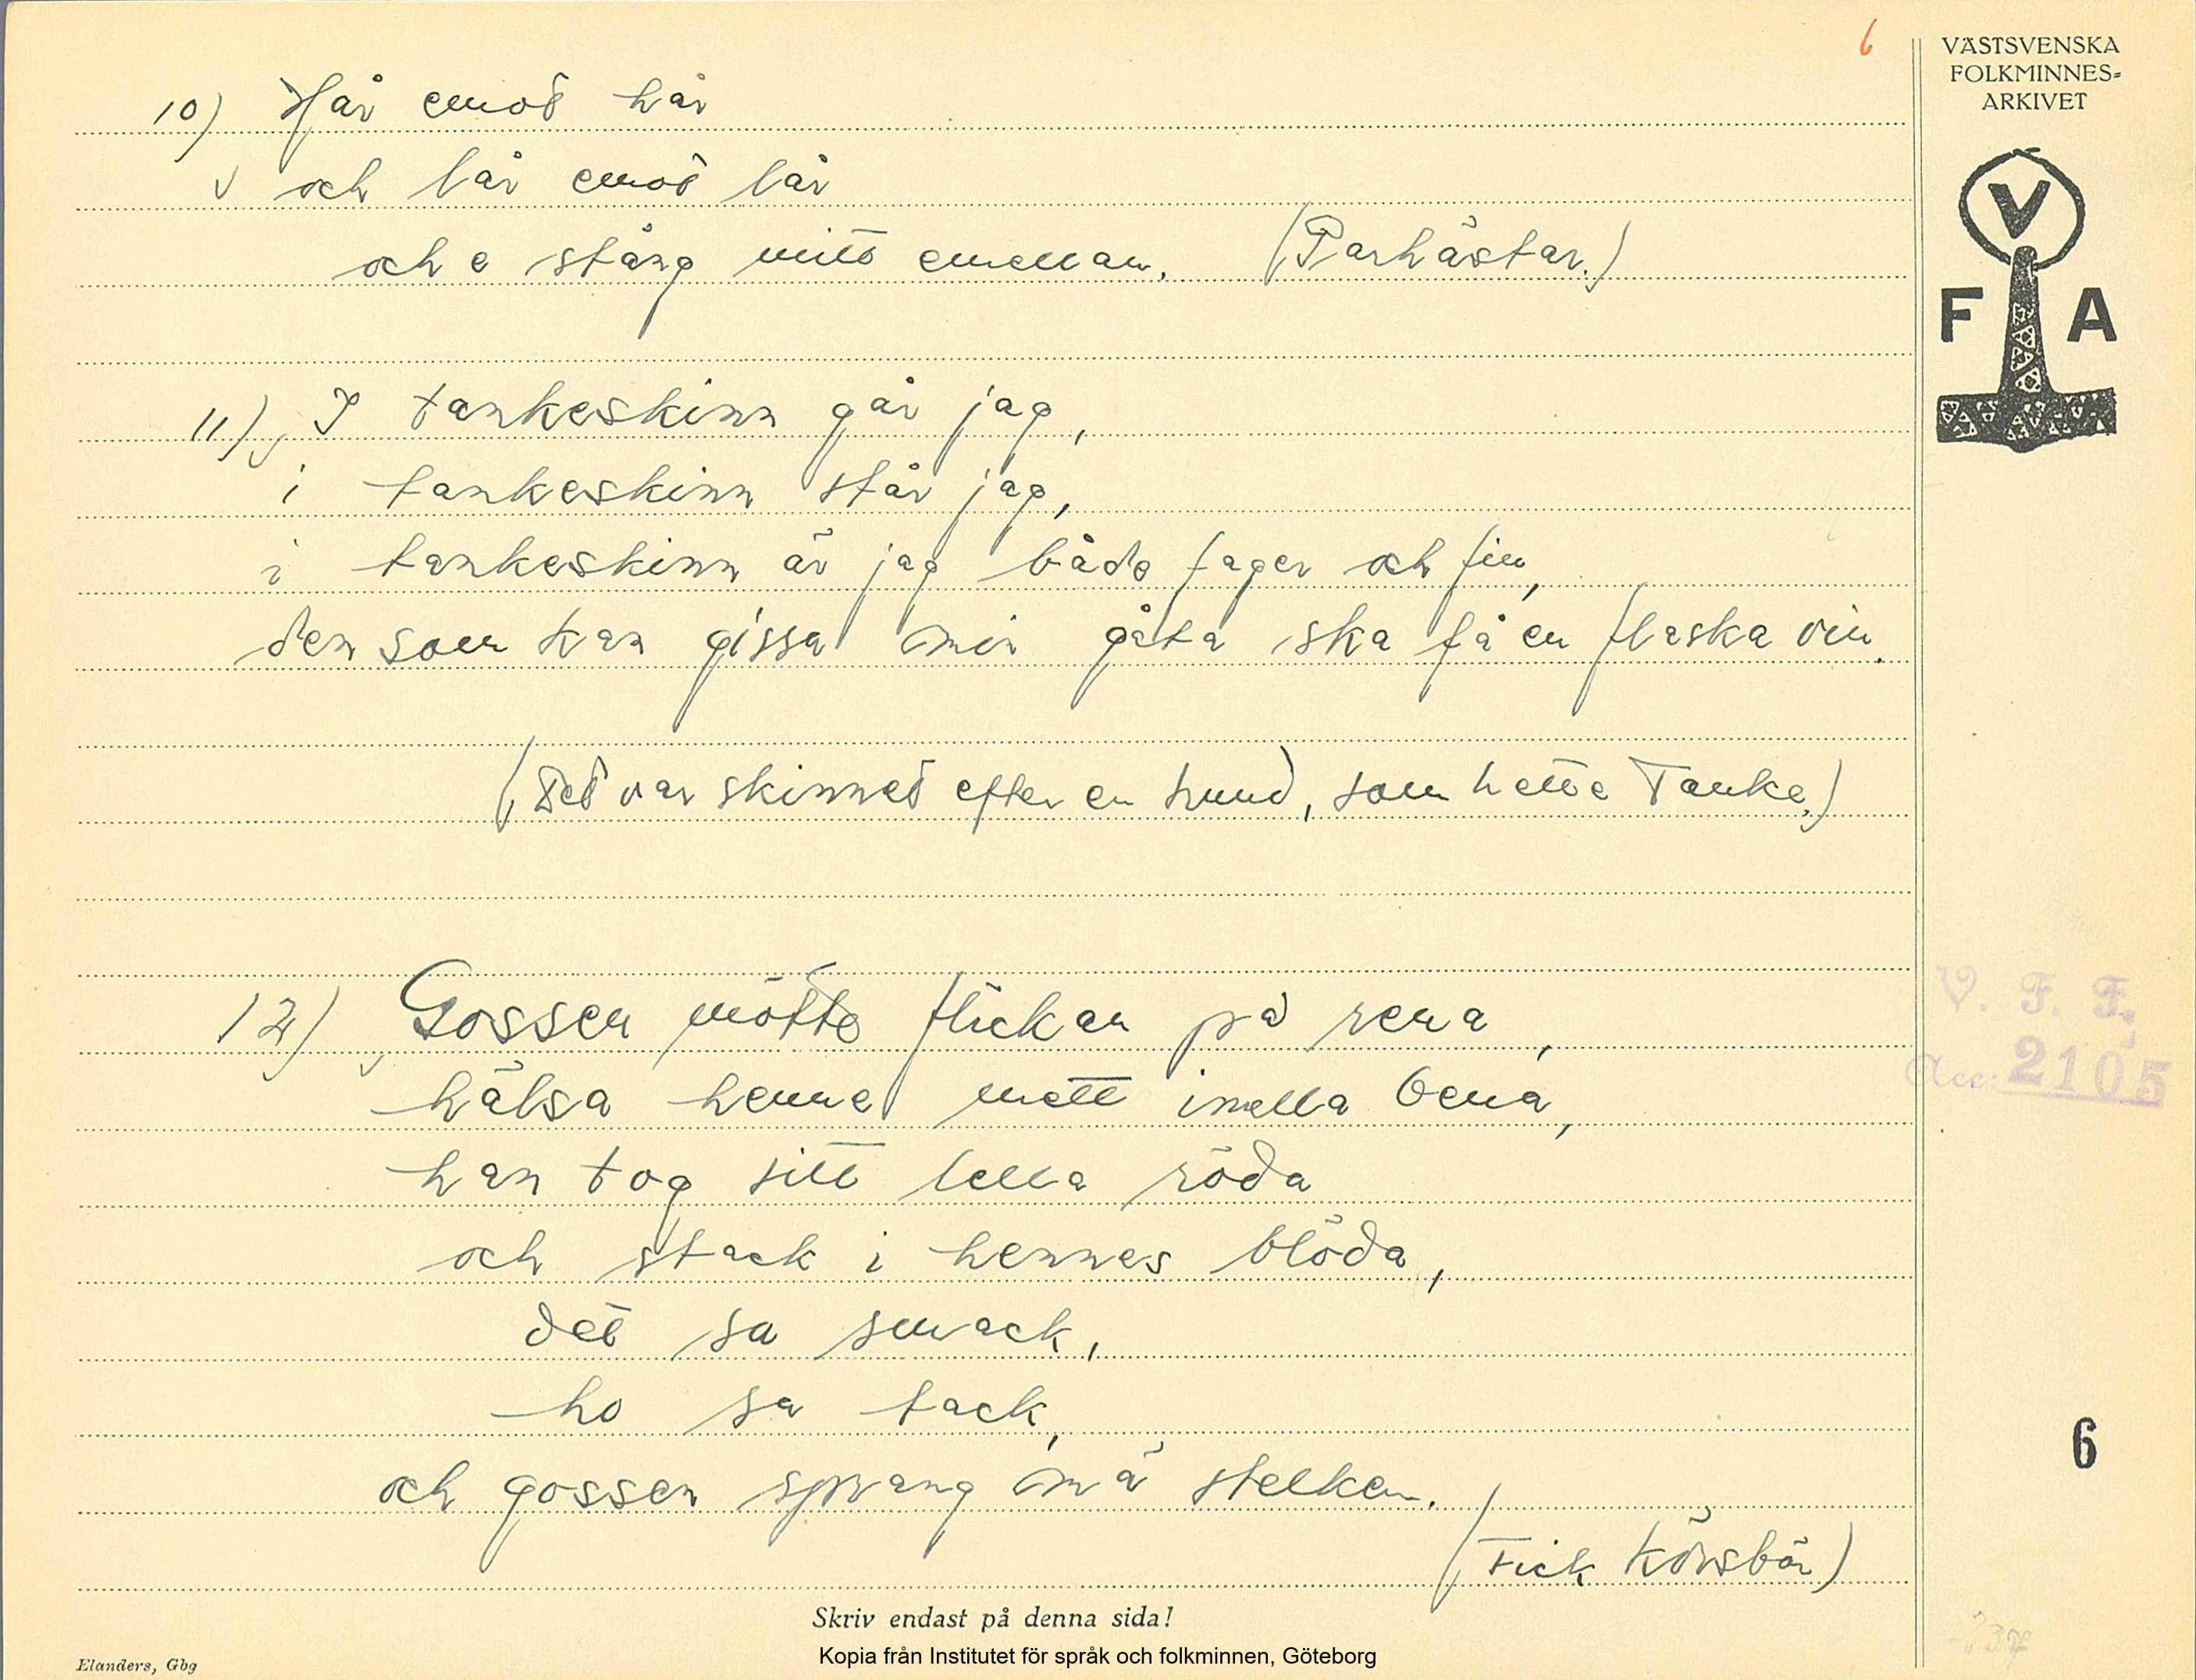 6
VÄSTSVENSKA
FOLKMINNES-
ARKIVET
V
F A
10) Hår emot hår
v och lår emot lår
och e stång mitt emellan. (Parhästar.)
11) I tankeskinn går jag,
i tankeskinn står jag,
i tankeskinn är jag både fager och fin,
den som kan gissa min gåta ska få en flaska vin.
(Det var skinnet efter en hund, som hette Tanke.)
12) Gossen mötte flickan på rena,
hälsa henne mett imella bena,
han tog sitt lella röda
och stack i hennes blöda,
det sa smack,
ho sa tack,
och gossen sprang mä stelken.
(Fick körsbär)
V. F. F.
Acc: 2105
6
Skriv endast på denna sida!
Kopia från Institutet för språk och folkminnen, Göteborg
Elanders, Gbg